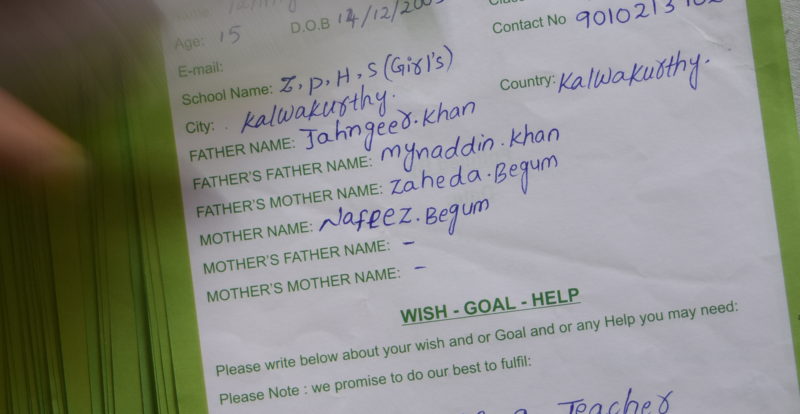 Age: 15 D.O.B 14/12/200
Contact No 9010213
E-mail:
School Name: Z.P.H.S (Girl's)
City: . Kalwakurthy. Country: Kalwakurthy.
FATHER NAME: Jahngeer. Khan
FATHER'S FATHER NAME: mynaddin. Khan
FATHER'S MOTHER NAME: Zaheda. Begum
MOTHER NAME: Nafeez. Begum
MOTHER'S FATHER NAME: -
MOTHER'S MOTHER NAME: -
WISH - GOAL - HELP
Please write below about your wish and or Goal and or any Help you may need:
Please Note : we promise to do our best to fulfil:
a Teacher